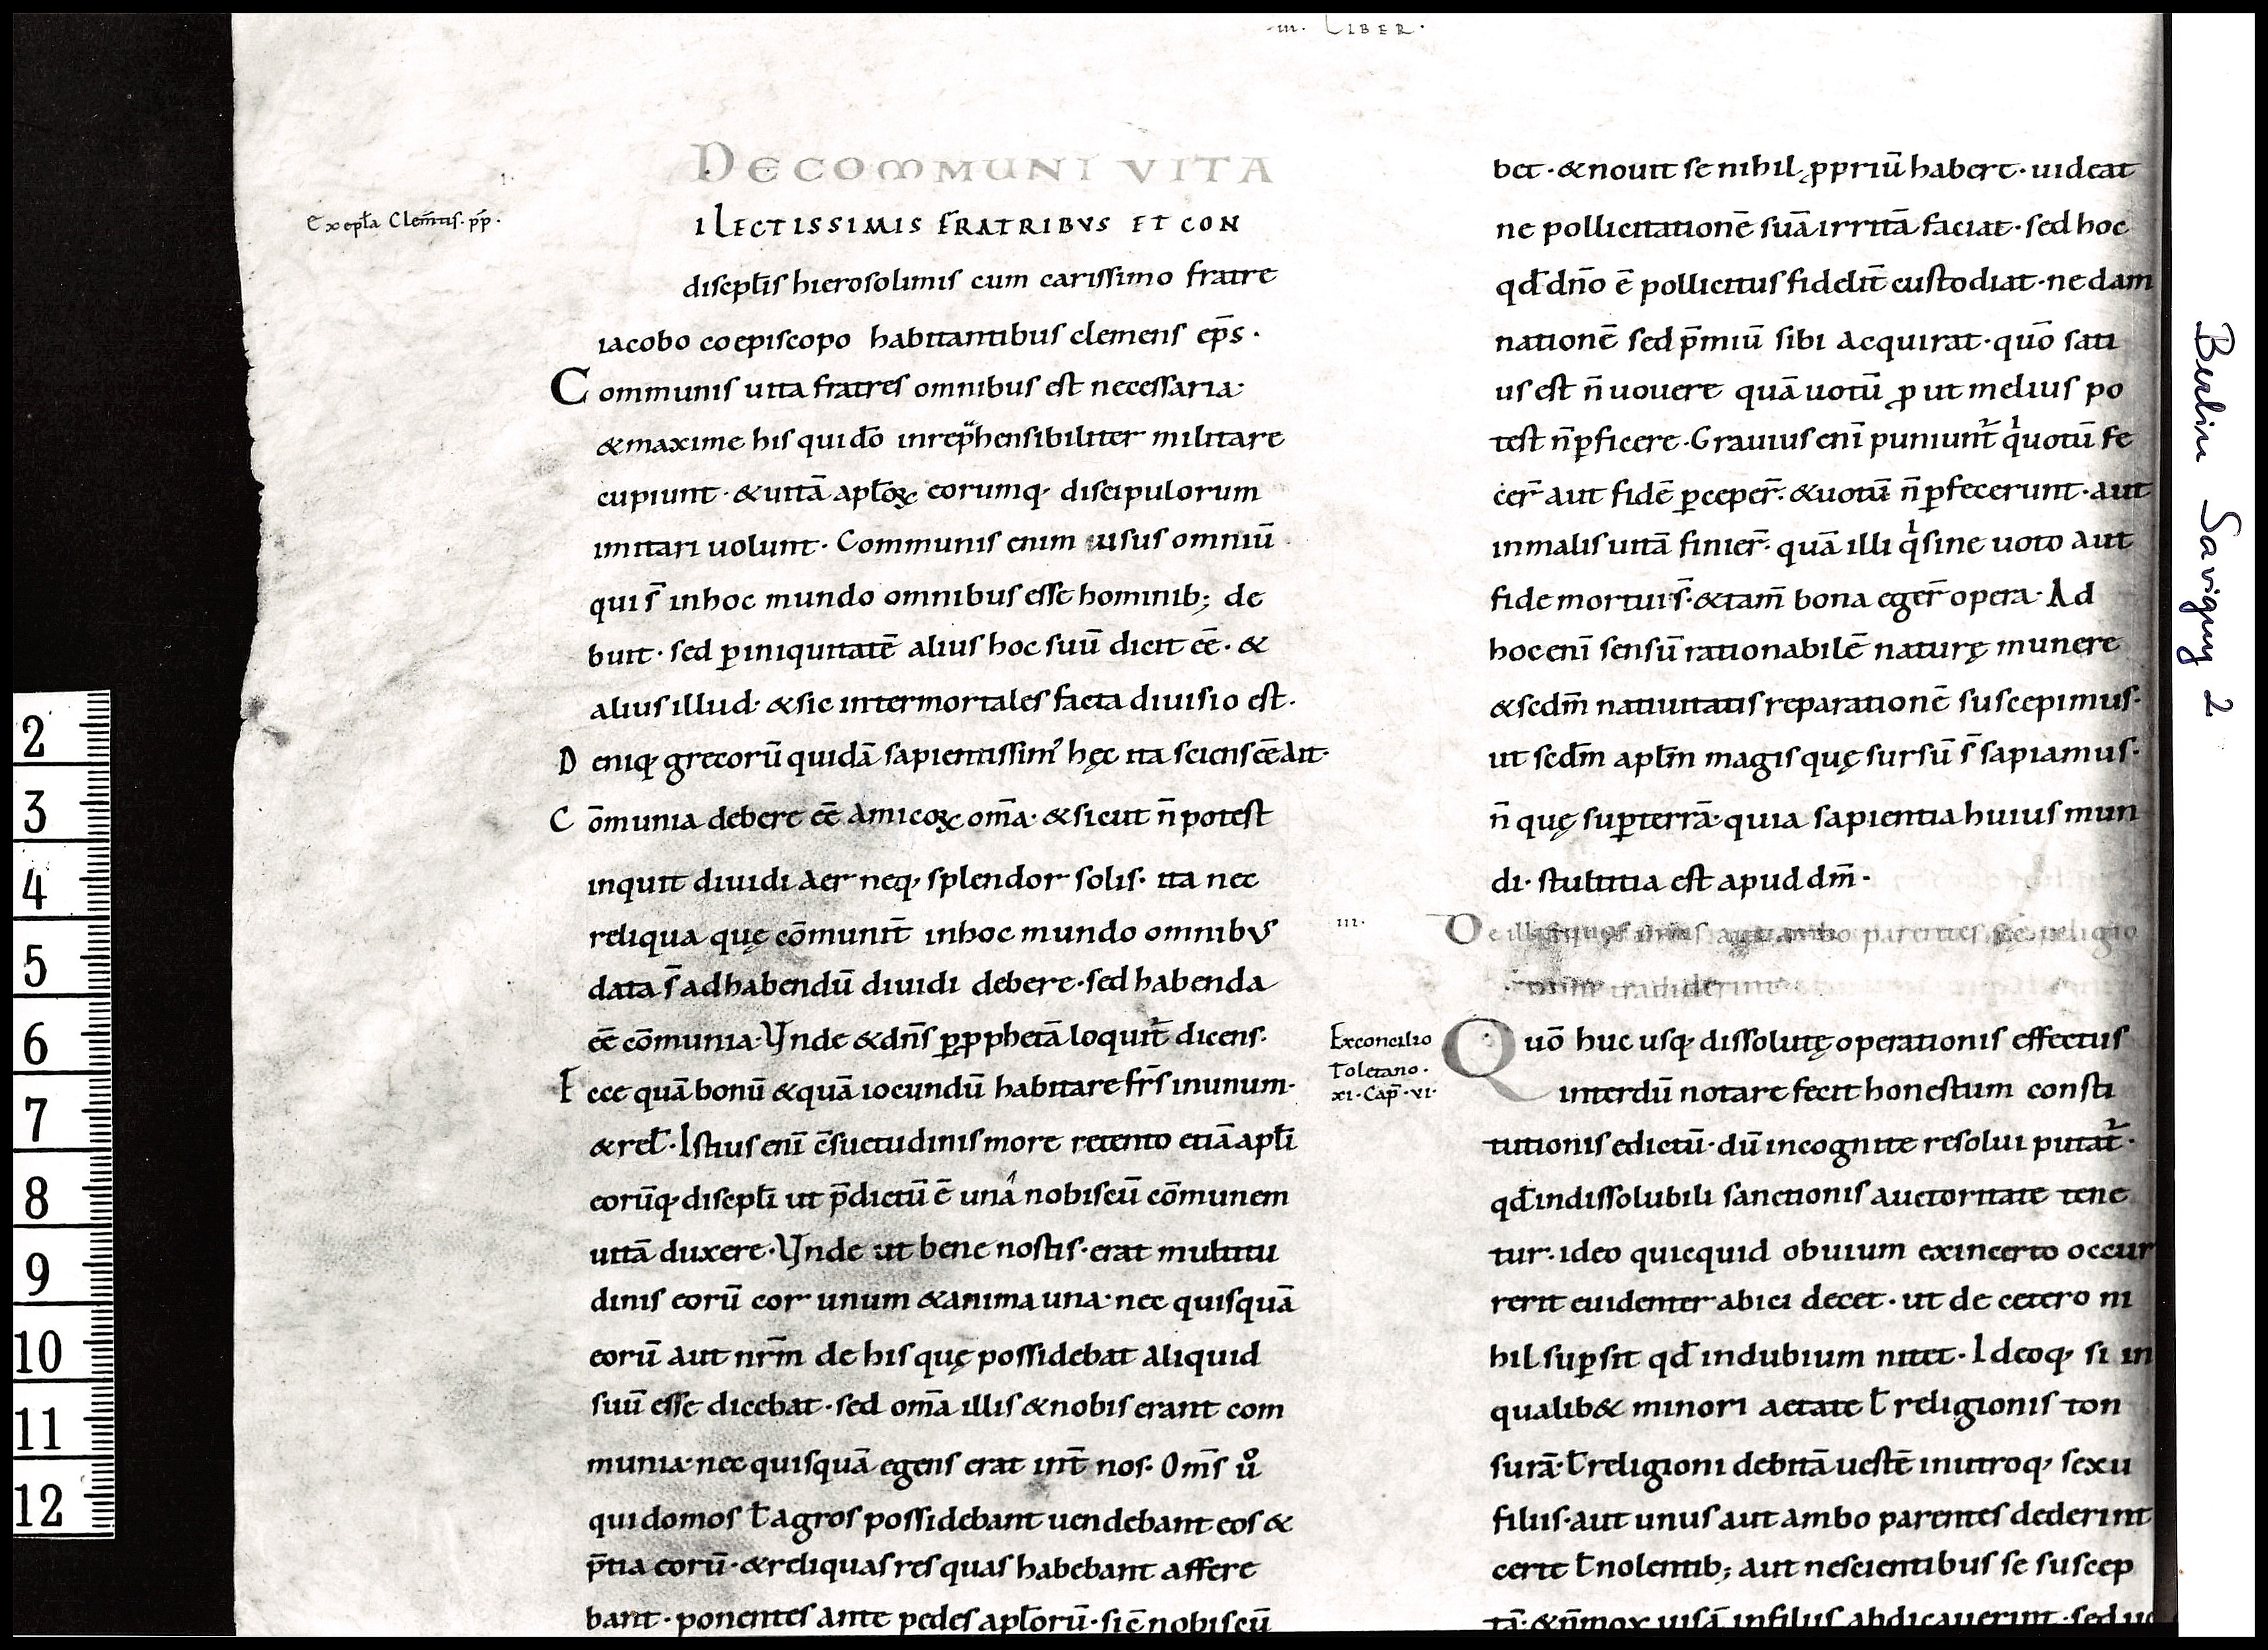 ·III· LIBER·
DE COMMUNI VITA
I·
Ex epl̄a Clem̄tis· pp̄·
ILECTISSIMIS FRATRIBVS ET CON
discipl̄is hierosolimis cum carissimo fratre
iacobo coepiscopo habitantibus clemens ep̄s·
Communis uita fratres omnibus est necessaria·
& maxime his qui dō inrep̄hensibiliter militare
cupiunt· & uitā apl̄oꝝ eorumq; discipulorum
imitari uolunt· Communis enim usus omniū
qui s̄ in hoc mundo omnibus esse hominib; de
buit· sed ꝑ iniquitatē alius hoc suū dicit ēē· &
alius illud· & sic inter mortales facta diuisio est·
Deniq; grecorū quidā sapientissim' hęc ita sciens ēē ait·
Cōmunia debere ēē amicoꝝ om̄a· & sicut n̄ potest
inquit diuidi aer neq; splendor solis· ita nec
reliqua quę cōmunit̄ in hoc mundo omnibus
data s̄ ad habendū diuidi debere· sed habenda
ēē cōmunia· Vnde & dn̄s ꝑ ꝓphetā loquit̄ dicens·
Ecce quā bonū & quā iocundū habitare fr̄s in unum·
& rel̄· Istius enī c̄suetudinis more retento etiā apl̄i
eorūq; discipl̄i ut p̄dictū ē una nobiscū cōmunem
uitā duxere· Vnde ut bene nostis· erat multitu
dinis eorū cor unum & anima una· nec quisquā
eorū aut nr̄m de his quę possidebat aliquid
suū esse dicebat· sed om̄a illis & nobis erant com
munia· nec quisquā egens erat int̄ nos· Om̄s uº
qui domos ł agros possidebant uendebant eos &
p̄tia eorū· & reliquas res quas habebant affere
bant· ponentes ante pedes apl̄orū· sic nobiscū
bet· & nouit se nihil ꝓpriū habere· uideat
ne pollicitationē suā irritā faciat· sed hoc
qd̄ dn̄o ē pollicitus fidelit̄ custodiat· ne dam
nationē sed p̄miū sibi acquirat· quō sati
us est n̄ uouere quā uotū ꝓut melius po
test n̄ ꝑficere· Grauius enī puniunt̄ qⁱ uotū fe
cer̄ aut fidē ꝑceper̄· & uotū n̄ ꝑfecerunt· aut
in malis uitā finier̄· quā illi qⁱ sine uoto aut
fide mortui s̄· & tam̄ bona eger̄ opera· Ad
hoc enī sensū rationabilē naturę munere
& scdm̄ natiuitatis reparationē suscepimus·
ut scdm̄ apl̄m magis quę sursū s̄ sapiamus·
n̄ quę suꝑ terrā· quia sapientia huius mun
di· stultitia est apud dm̄·
III·
De illis quos unus aut ambo parentes religio
tradiderint
Ex concilio
Toletano·
XI· Cap̄· VI·
Quō huc usq; dissolutę operationis effectus
interdū notare fecit honestum consti
tutionis edictū· dū incognite resolui putat̄·
qd̄ indissolubili sanctionis auctoritate tene
tur· ideo quicquid obuium ex incerto occur
rerit euidenter abici decet· ut de cetero ni
hil suꝑsit qd̄ in dubium nitet· Ideoq; si in
qualib& minori aetate ł religionis ton
surā· ł religioni debitā uestē in utroq; sexu
filiis· aut unus aut ambo parentes dederint
certe ł nolentib; aut nescientibus se suscep
tā· & n̄ mox uisā in filiis abdicauerint· sed
Berlin Savigny 2
2
3
4
5
6
7
8
9
10
11
12